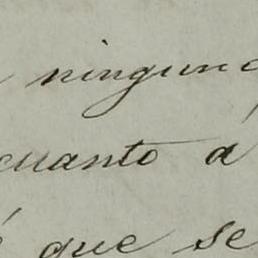 ninguna
cuanto á
que se